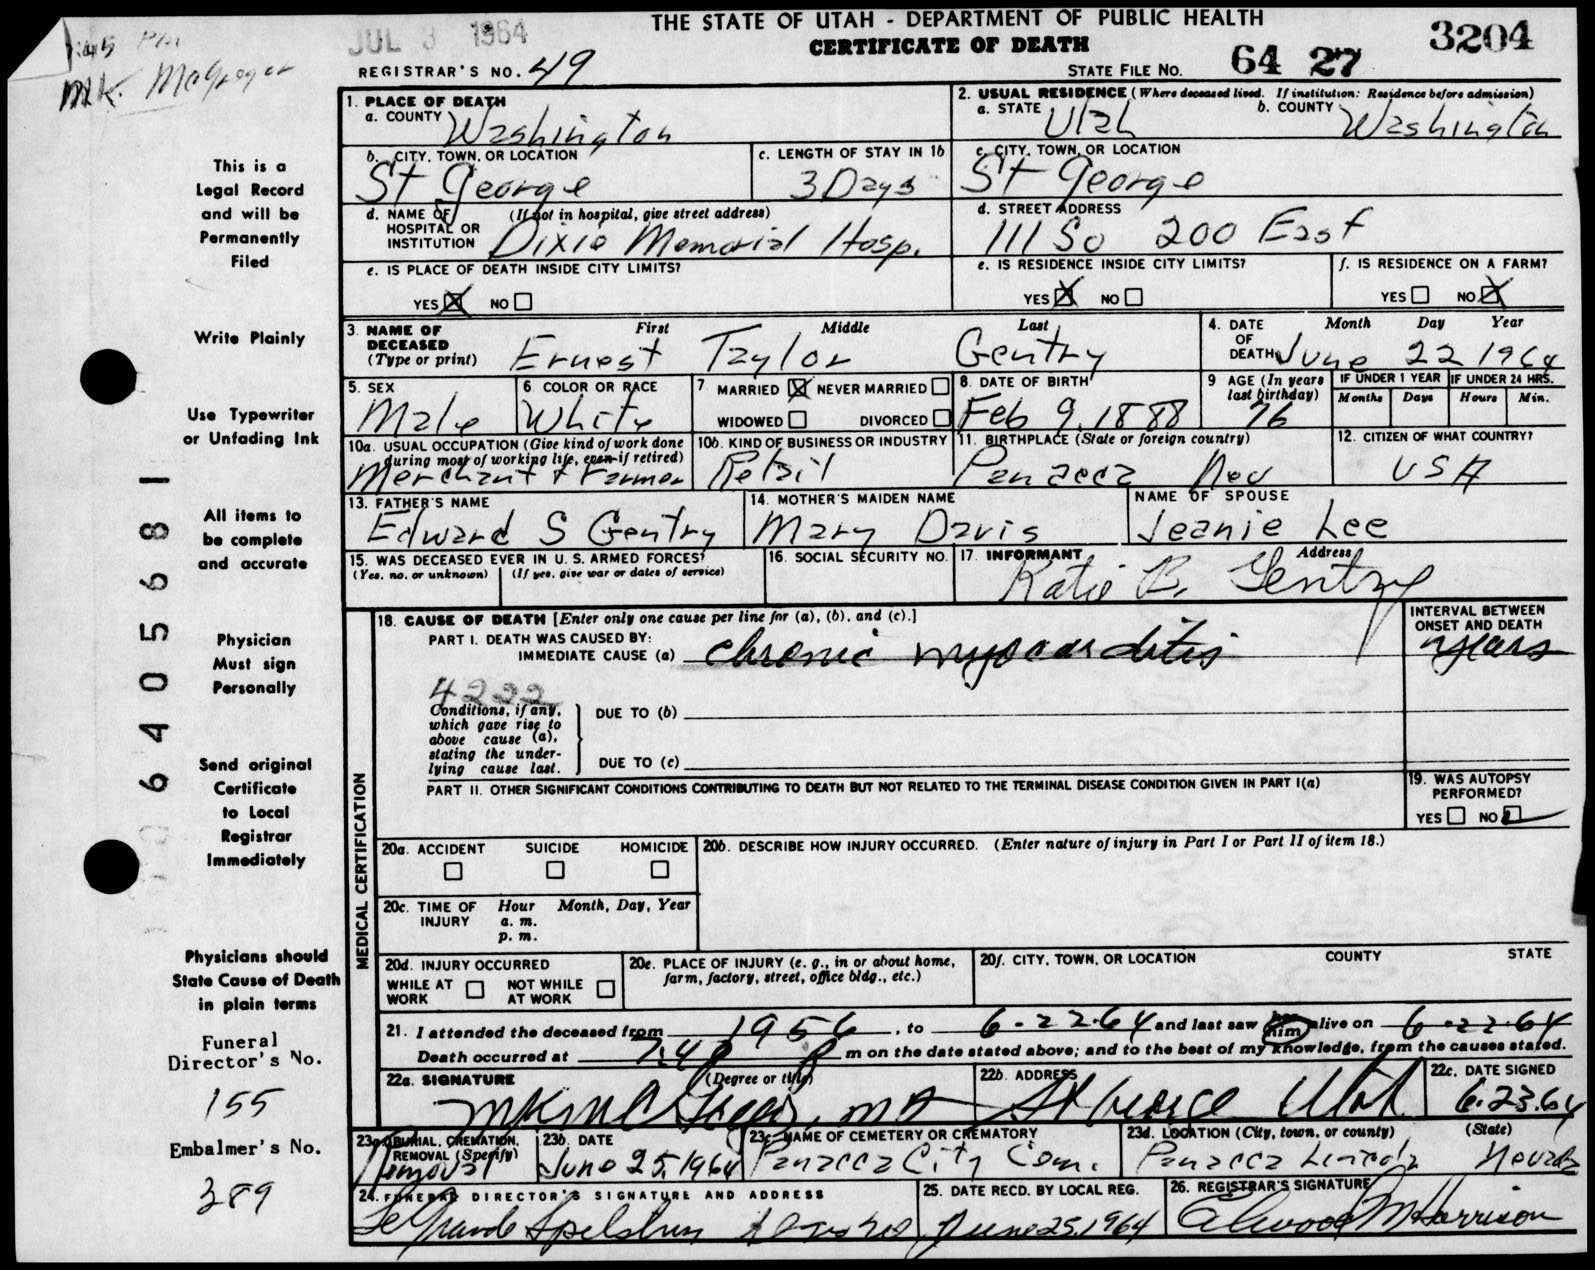 JUL 3 1964
THE STATE OF UTAH - DEPARTMENT OF PUBLIC HEALTH
CERTIFICATE OF DEATH
3204
REGISTRAR'S NO. 49
STATE FILE NO. 64 27
1:45 PM
MK. McGregor
This is a
Legal Record
and will be
Permanently
Filed
Write Plainly
Use Typewriter
or Unfading Ink
All items to
be complete
and accurate
Physician
Must sign
Personally
Send original
Certificate
to Local
Registrar
Immediately
Physicians should
State Cause of Death
in plain terms
Funeral
Director's No.
155
Embalmer's No.
389
640568 1
1. PLACE OF DEATH
a. COUNTY Washington
2. USUAL RESIDENCE (Where deceased lived. If institution: Residence before admission)
a. STATE Utah b. COUNTY Washington
b. CITY, TOWN, OR LOCATION
St George
c. LENGTH OF STAY IN 1b
3 Days
c. CITY, TOWN, OR LOCATION
St George
d. NAME OF HOSPITAL OR INSTITUTION (If not in hospital, give street address)
Dixie Memorial Hosp.
d. STREET ADDRESS
111 So 200 East
e. IS PLACE OF DEATH INSIDE CITY LIMITS?
YES X NO
e. IS RESIDENCE INSIDE CITY LIMITS?
YES X NO
f. IS RESIDENCE ON A FARM?
YES NO X
3. NAME OF DECEASED (Type or print) First Middle Last
Ernest Taylor Gentry
4. DATE OF DEATH Month Day Year
June 22 1964
5. SEX
Male
6. COLOR OR RACE
White
7. MARRIED X NEVER MARRIED
WIDOWED DIVORCED
8. DATE OF BIRTH
Feb 9, 1888
9 AGE (In years last birthday)
76
IF UNDER 1 YEAR IF UNDER 24 HRS.
Months Days Hours Min.
10a. USUAL OCCUPATION (Give kind of work done during most of working life, even if retired)
Merchant + Farmer
10b. KIND OF BUSINESS OR INDUSTRY
Retail
11. BIRTHPLACE (State or foreign country)
Panacca Nev
12. CITIZEN OF WHAT COUNTRY?
USA
13. FATHER'S NAME
Edward S Gentry
14. MOTHER'S MAIDEN NAME
Mary Davis
NAME OF SPOUSE
Jeanie Lee
15. WAS DECEASED EVER IN U.S. ARMED FORCES?
(Yes, no, or unknown) (If yes, give war or dates of service)
16. SOCIAL SECURITY NO.
17. INFORMANT Address
Katie B. Gentry
MEDICAL CERTIFICATION
18. CAUSE OF DEATH [Enter only one cause per line for (a), (b), and (c).]
PART I. DEATH WAS CAUSED BY:
IMMEDIATE CAUSE (a) chronic myocarditis
INTERVAL BETWEEN ONSET AND DEATH
years
4222
Conditions, if any, which gave rise to above cause (a), stating the underlying cause last.
DUE TO (b)
DUE TO (c)
PART II. OTHER SIGNIFICANT CONDITIONS CONTRIBUTING TO DEATH BUT NOT RELATED TO THE TERMINAL DISEASE CONDITION GIVEN IN PART I(a)
19. WAS AUTOPSY PERFORMED?
YES NO
20a. ACCIDENT SUICIDE HOMICIDE
20b. DESCRIBE HOW INJURY OCCURRED. (Enter nature of injury in Part I or Part II of item 18.)
20c. TIME OF INJURY Hour Month, Day, Year
a. m.
p. m.
20d. INJURY OCCURRED
WHILE AT WORK NOT WHILE AT WORK
20e. PLACE OF INJURY (e. g., in or about home, farm, factory, street, office bldg., etc.)
20f. CITY, TOWN, OR LOCATION COUNTY STATE
21. I attended the deceased from 1956, to 6-22-64 and last saw him alive on 6-22-64
Death occurred at 7:40 P m on the date stated above; and to the best of my knowledge, from the causes stated.
22a. SIGNATURE (Degree or title)
MK McGregor, MD
22b. ADDRESS
St George Utah
22c. DATE SIGNED
6.23.64
23a. BURIAL, CREMATION, REMOVAL (Specify)
Removal
23b. DATE
June 25, 1964
23c. NAME OF CEMETERY OR CREMATORY
Panacca City Cem.
23d. LOCATION (City, town, or county) (State)
Panacca Lincoln Nevada
24. FUNERAL DIRECTOR'S SIGNATURE AND ADDRESS
25. DATE RECD. BY LOCAL REG.
June 25, 1964
26. REGISTRAR'S SIGNATURE
Elwood M Harrison